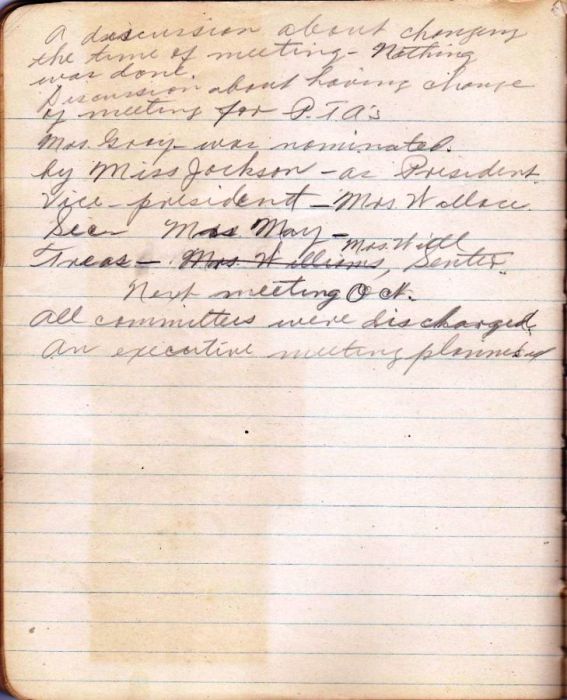 A discussion about changing
the time of meeting - Nothing
was done.
Discussion about having change
of meeting for P.T.A's
Mrs. Gray - was nominated.
by Miss Jackson - as President.
Vice - president - Mrs Wallace.
Sec - Mrs. May -
Mrs. Will
Treas - Mrs. Williams, Senter.
Next meeting Oct.
All committees were discharged.
An executive meeting planned